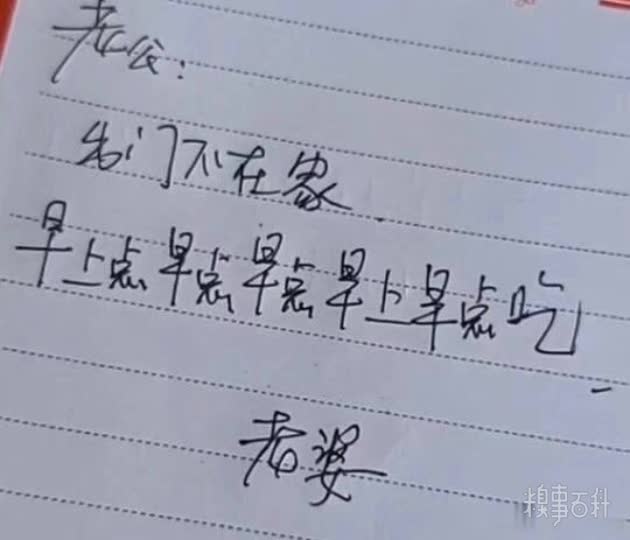 老公：
出门不在家.
早上点早点早点早上早点吃
老婆
糗事百科